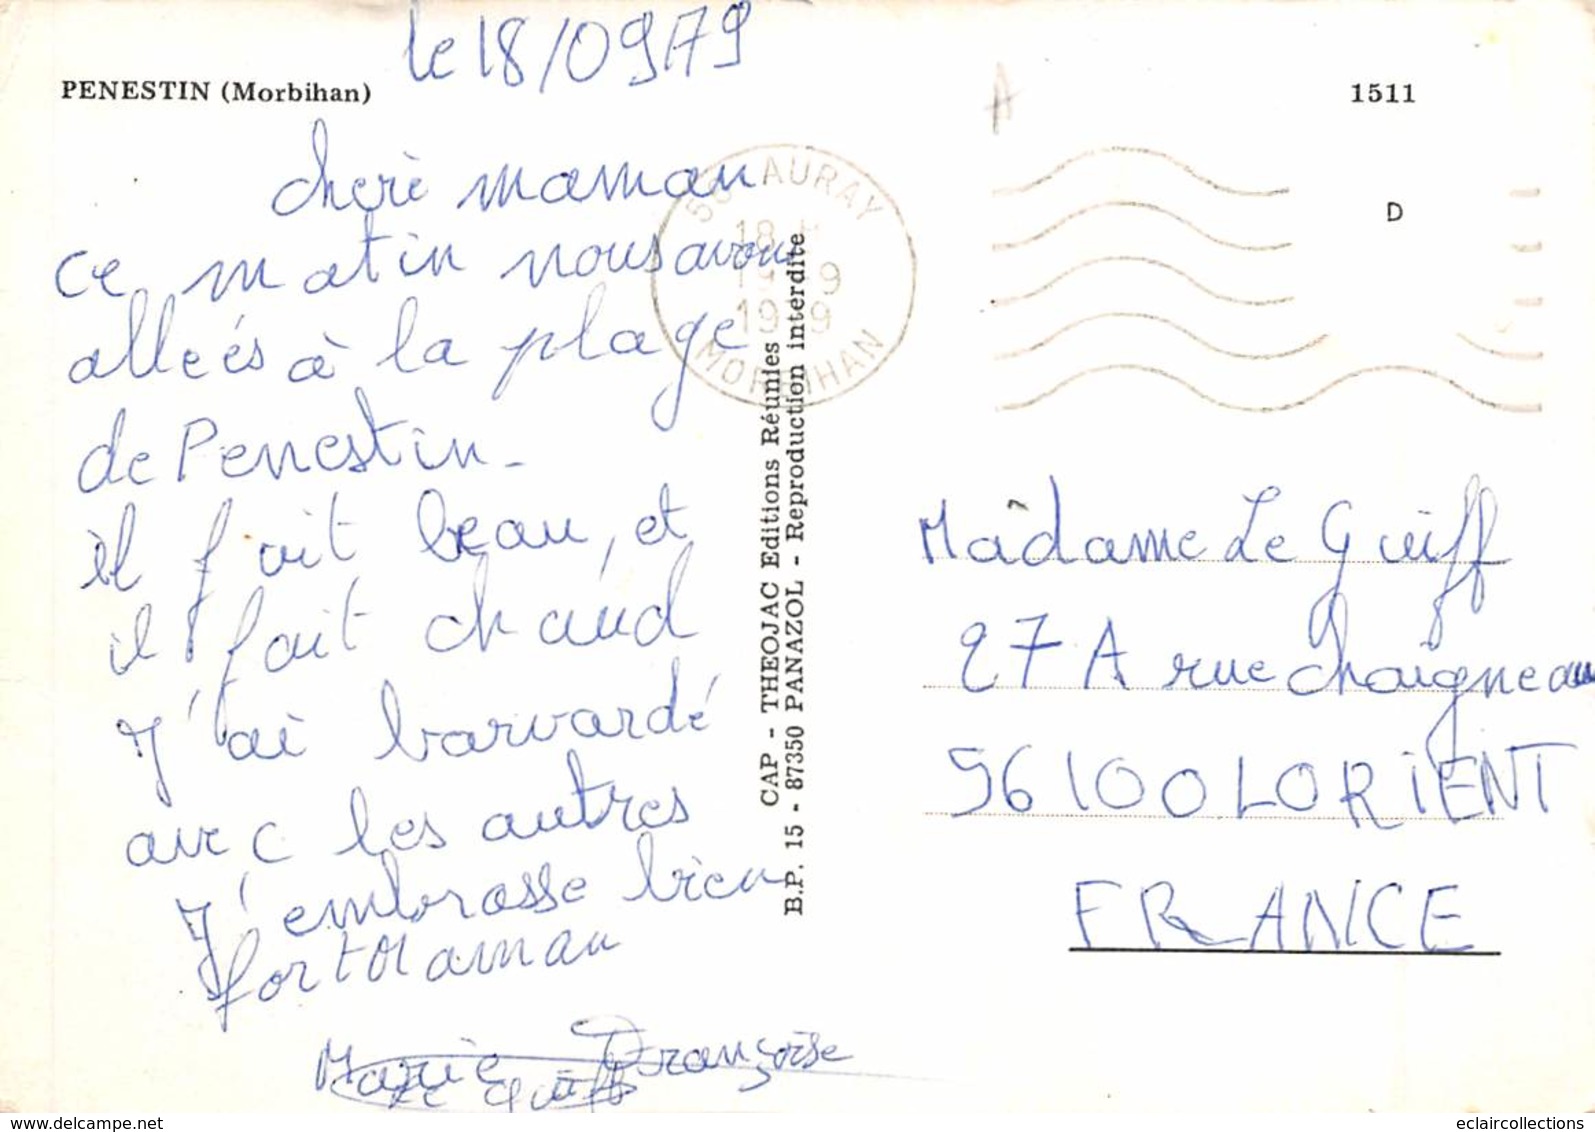 le 18/09 79
PENESTIN (Morbihan)
1511
cherè maman
ce matin nous avons
alleés à la plage
de Penestin_
il fait beau, et
il fait chaud
J'ai barvardé
avec les autres
J'embrasse bien
fort Maman
Marie Françoise
Le Guiff
56 AURAY
18 H
19 - 9
1979
MORBIHAN
D
CAP - THEOJAC Editions Réunies
B.P. 15 - 87350 PANAZOL - Reproduction interdite
Madame Le Guiff
27 A rue Chaigneau
56100 LORIENT
FRANCE
www.delcampe.net
eclaircollections